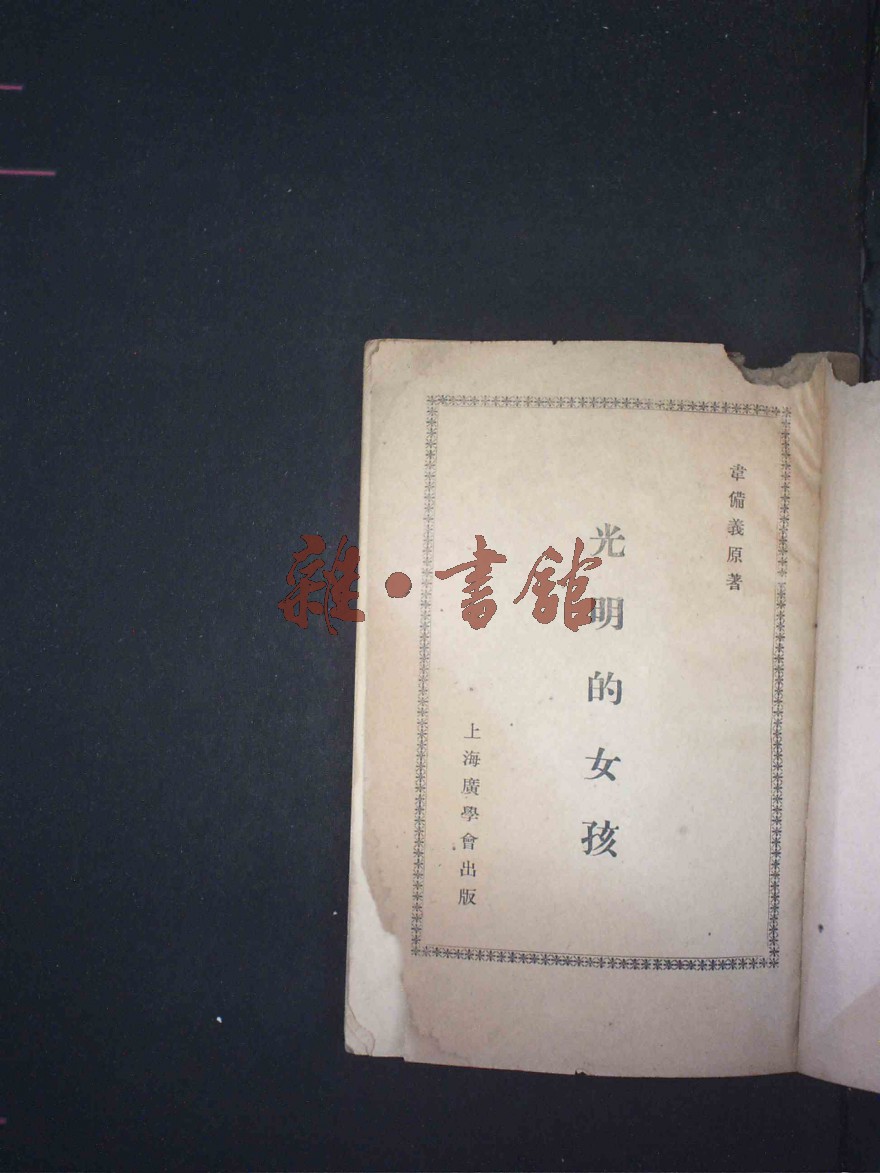 韋備義原著
光明的女孩
上海廣學會出版
雜•書館